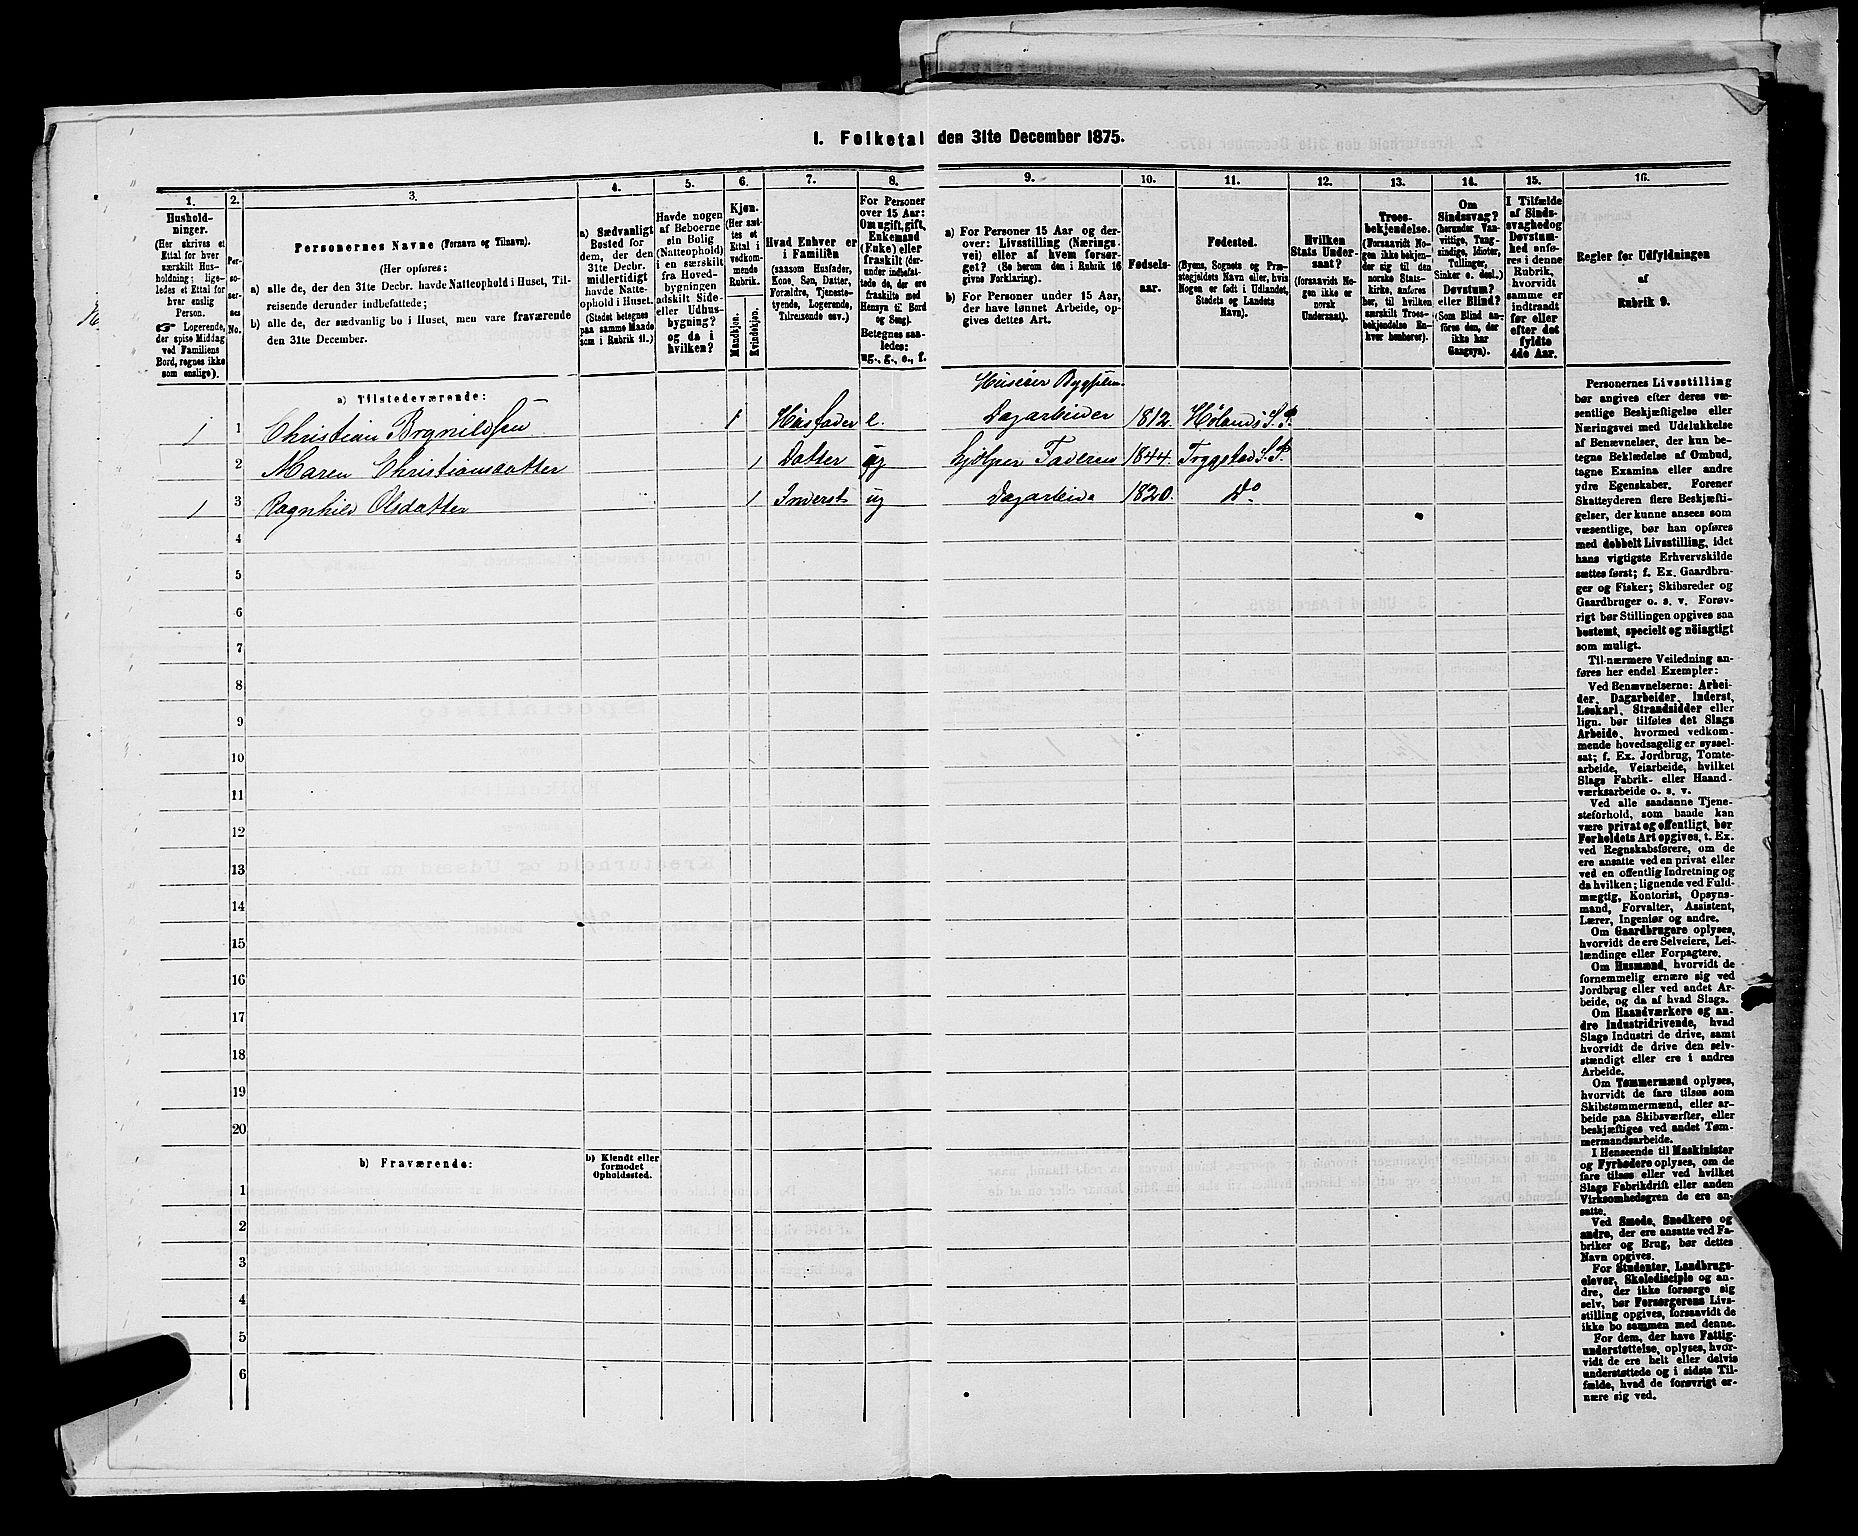 I. Folketal den 31te December 1875.
1.
Hushold-
ninger.
(Her skrives et
Ettal for hver
særskilt Hus-
holdning; lige-
ledes et Ettal for
hver enslig
Person.
Logerende,
der spise Middag
ved Familiens
Bord, regnes ikke
som enslige).
2.
Per-
so-
ner-
nes
No.
3.
Personernes Navne (Fornavn og Tilnavn).
(Her opføres:
a) alle de, der den 31te Decbr. havde Natteophold i Huset, Til-
reisende derunder indbefattede;
b) alle de, der sædvanlig bo i Huset, men vare fraværende
den 31te December.
4.
a) Sædvanligt
Bosted for
dem, der den
31te Decbr.
midlertidigt
havde Natte-
ophold i Huset.
(Stedet betegnes
paa samme Maade
som i Rubrik 11.)
5.
Havde nogen
af Beboerne
sin Bolig
(Natteophold)
i en særskilt
fra Hoved-
bygningen
adskilt Side-
eller Udhus-
bygning?
og da i
hvilken?
6.
Kjøn.
(Her sæt-
tes et
Ettal i
vedkom-
mende
Rubrik.
Mandkjøn.
Kvindekjøn.
7.
Hvad Enhver er
i Familien
(saasom Husfader,
Kone, Søn, Datter,
Forældre, Tjeneste-
tyende, Logerende,
Tilreisende osv.)
8.
For Personer
over 15 Aar:
Om ugift, gift,
Enkemand
(Enke) eller
fraskilt (der-
under indbefat-
tede de, der ere
fraskilte med
Hensyn til Bord
og Seng).
Betegnes saa-
ledes:
ug., g., e., f.
9.
a) For Personer 15 Aar og der-
over: Livsstilling (Nærings-
vei) eller af hvem forsør-
get? (Se herom den i Rubrik 16
givne Forklaring).
b) For Personer under 15 Aar,
der have lønnet Arbeide, op-
gives dettes Art.
10.
Fødsels-
aar.
11.
Fødested.
(Byens, Sognets og Præ-
stegjeldets Navn eller, hvis
Nogen er født i Udlandet,
Stedets og Landets
Navn).
12.
Hvilken
Stats Under-
saat?
(forsaavidt No-
gen ikke er
norsk
Undersaat).
13.
Troes-
bekjendelse.
(Forsaavidt No-
gen ikke bekjen-
der sig til den
norske Stats-
kirke, anføres
her, til hvilken
særskilt Troes-
bekjendelse En-
hver henhører).
14.
Om
Sindssvag?
(herunder Van-
vittige, Tung-
sindige, Idioter,
Tullinger,
Sinker o. desl.)
Døvstum?
eller Blind?
(Som Blind an-
føres den, der
ikke har
Gangsyn).
15.
I Tilfælde
af Sinds-
svaghed og
Døvstum-
hed anfø-
res i denne
Rubrik,
hvorvidt
samme er
indtraadt
før eller
efter det
fyldte
4de Aar.
16.
Regler for Udfyldningen
af
Rubrik 9.
a) Tilstedeværende:
Huseier Bygselm.
1 1 Christian Brynildsen 1 Husfader e. Dagarbeider 1812. Hølands S. P.
2 Maren Christiansdatter 1 Datter ug hjælper Faderen 1844. Trygstad S. P.
1 3 Ragnhild Olsdatter 1 Inderst ug Dagarbeide 1820. Do
4
5
6
7
8
9
10
11
12
13
14
15
16
17
18
19
20
b) Fraværende:
b) Kjendt eller
formodet
Opholdssted.
1
2
3
4
5
6
Personernes Livsstilling
bør angives efter deres væ-
sentlige Beskjæftigelse eller
Næringsvei med Udelukkelse
af Benævnelser, der kun be-
tegne Beklædelse af Ombud,
tagne Examina eller andre
ydre Egenskaber. Forener
Skatteyderen flere Beskjæfti-
gelser, der kunne ansees som
væsentlige, bør han opføres
med dobbelt Livsstilling, idet
hans vigtigste Erhvervskilde
sættes først; f. Ex. Gaardbru-
ger og Fisker; Skibsreder og
Gaardbruger o. s. v. Forøv-
rigt bør Stillingen opgives saa
bestemt, specielt og nøiagtigt
som muligt.
Til nærmere Veiledning an-
føres her endel Exempler:
Ved Benævnelserne: Arbei-
der, Dagarbeider, Inderst,
Løskarl, Strandsidder eller
lign. bør tilføies det Slags
Arbeide, hvormed vedkom-
mende hovedsagelig er syssel-
sat; f. Ex. Jordbrug, Tomte-
arbeide, Veiarbeide, hvilket
Slags Fabrik- eller Haand-
værksarbeide o. s. v.
Ved alle saadanne Tjene-
steforhold, som baade kan
være privat og offentligt, bør
Forholdets Art opgives, t. Ex.
ved Regnskabsførere, om de
ere ansatte ved en privat eller
ved en offentlig Indretning og
da hvilken; lignende ved Fuld-
mægtig, Kontorist, Opsyns-
mand, Forvalter, Assistent,
Lærer, Ingeniør og andre.
Om Gaardbrugere oplyses,
hvorvidt de ere Selveiere, Lei-
lændinge eller Forpagtere.
Om Husmænd, hvorvidt de
fornemmelig ernære sig ved
Jordbrug eller ved andet Ar-
beide, og da af hvad Slags.
Om Haandværkere og an-
dre Industridrivende, hvad
Slags Industri de drive, samt
hvorvidt de drive den selv-
stændigt eller ere i andres
Arbeide.
Om Tømmermænd oplyses,
hvorvidt de fare tilsøs som
Skibstømmermænd, eller ar-
beide paa Skibsværfter, eller
beskjæftiges ved andet Tøm-
mermandsarbeide.
I Henseende til Maskinister
og Fyrbødere oplyses, om de
fare tilsøs eller ved hvilket
Slags Fabrikdrift eller anden
Virksomhedsgren de ere an-
satte.
Ved Smede, Snedkere og
andre, der ere ansatte ved Fa-
briker og Brug, bør dettes
Navn opgives.
For Studenter, Landbrugs-
elever, Skoledisciple og an-
dre, der ikke forsørge sig
selv, bør Forsørgerens Livs-
stilling opgives, forsaavidt de
ikke bo sammen med denne.
For dem, der have Fattig-
understøttelse, oplyses, hvor-
vidt de ere helt eller delvis
understøttede og i sidste Til-
fælde, hvad de forøvrigt er-
nære sig ved.